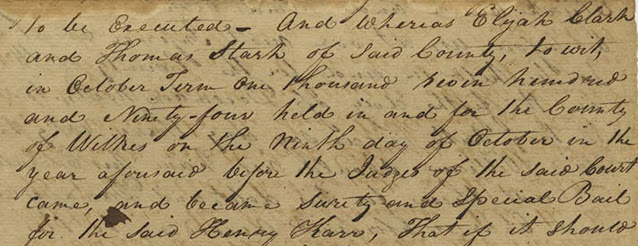 to be Executed – And Whereas Elijah Clark
and Thomas Stark of Said County, to wit,
in October Term One thousand seven hundred
and Ninety-four held in and for the County
of Wilkes on the Ninth day of October in the
year aforesaid before the Judges of the said Court
came, and became surety and Special Bail
for the said Henry Karr, That if it should